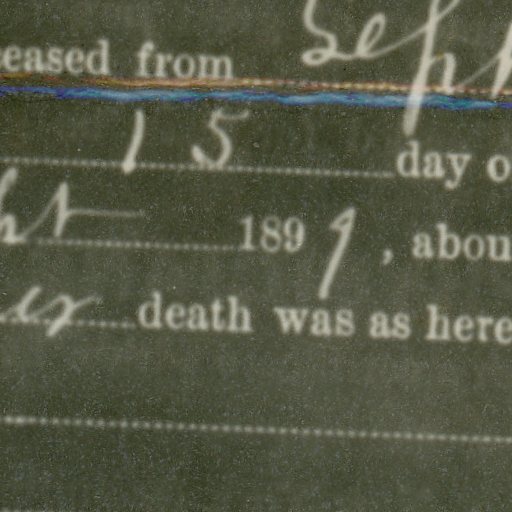 eased from Sep
15 day o
pt 1899, abou
death was as here